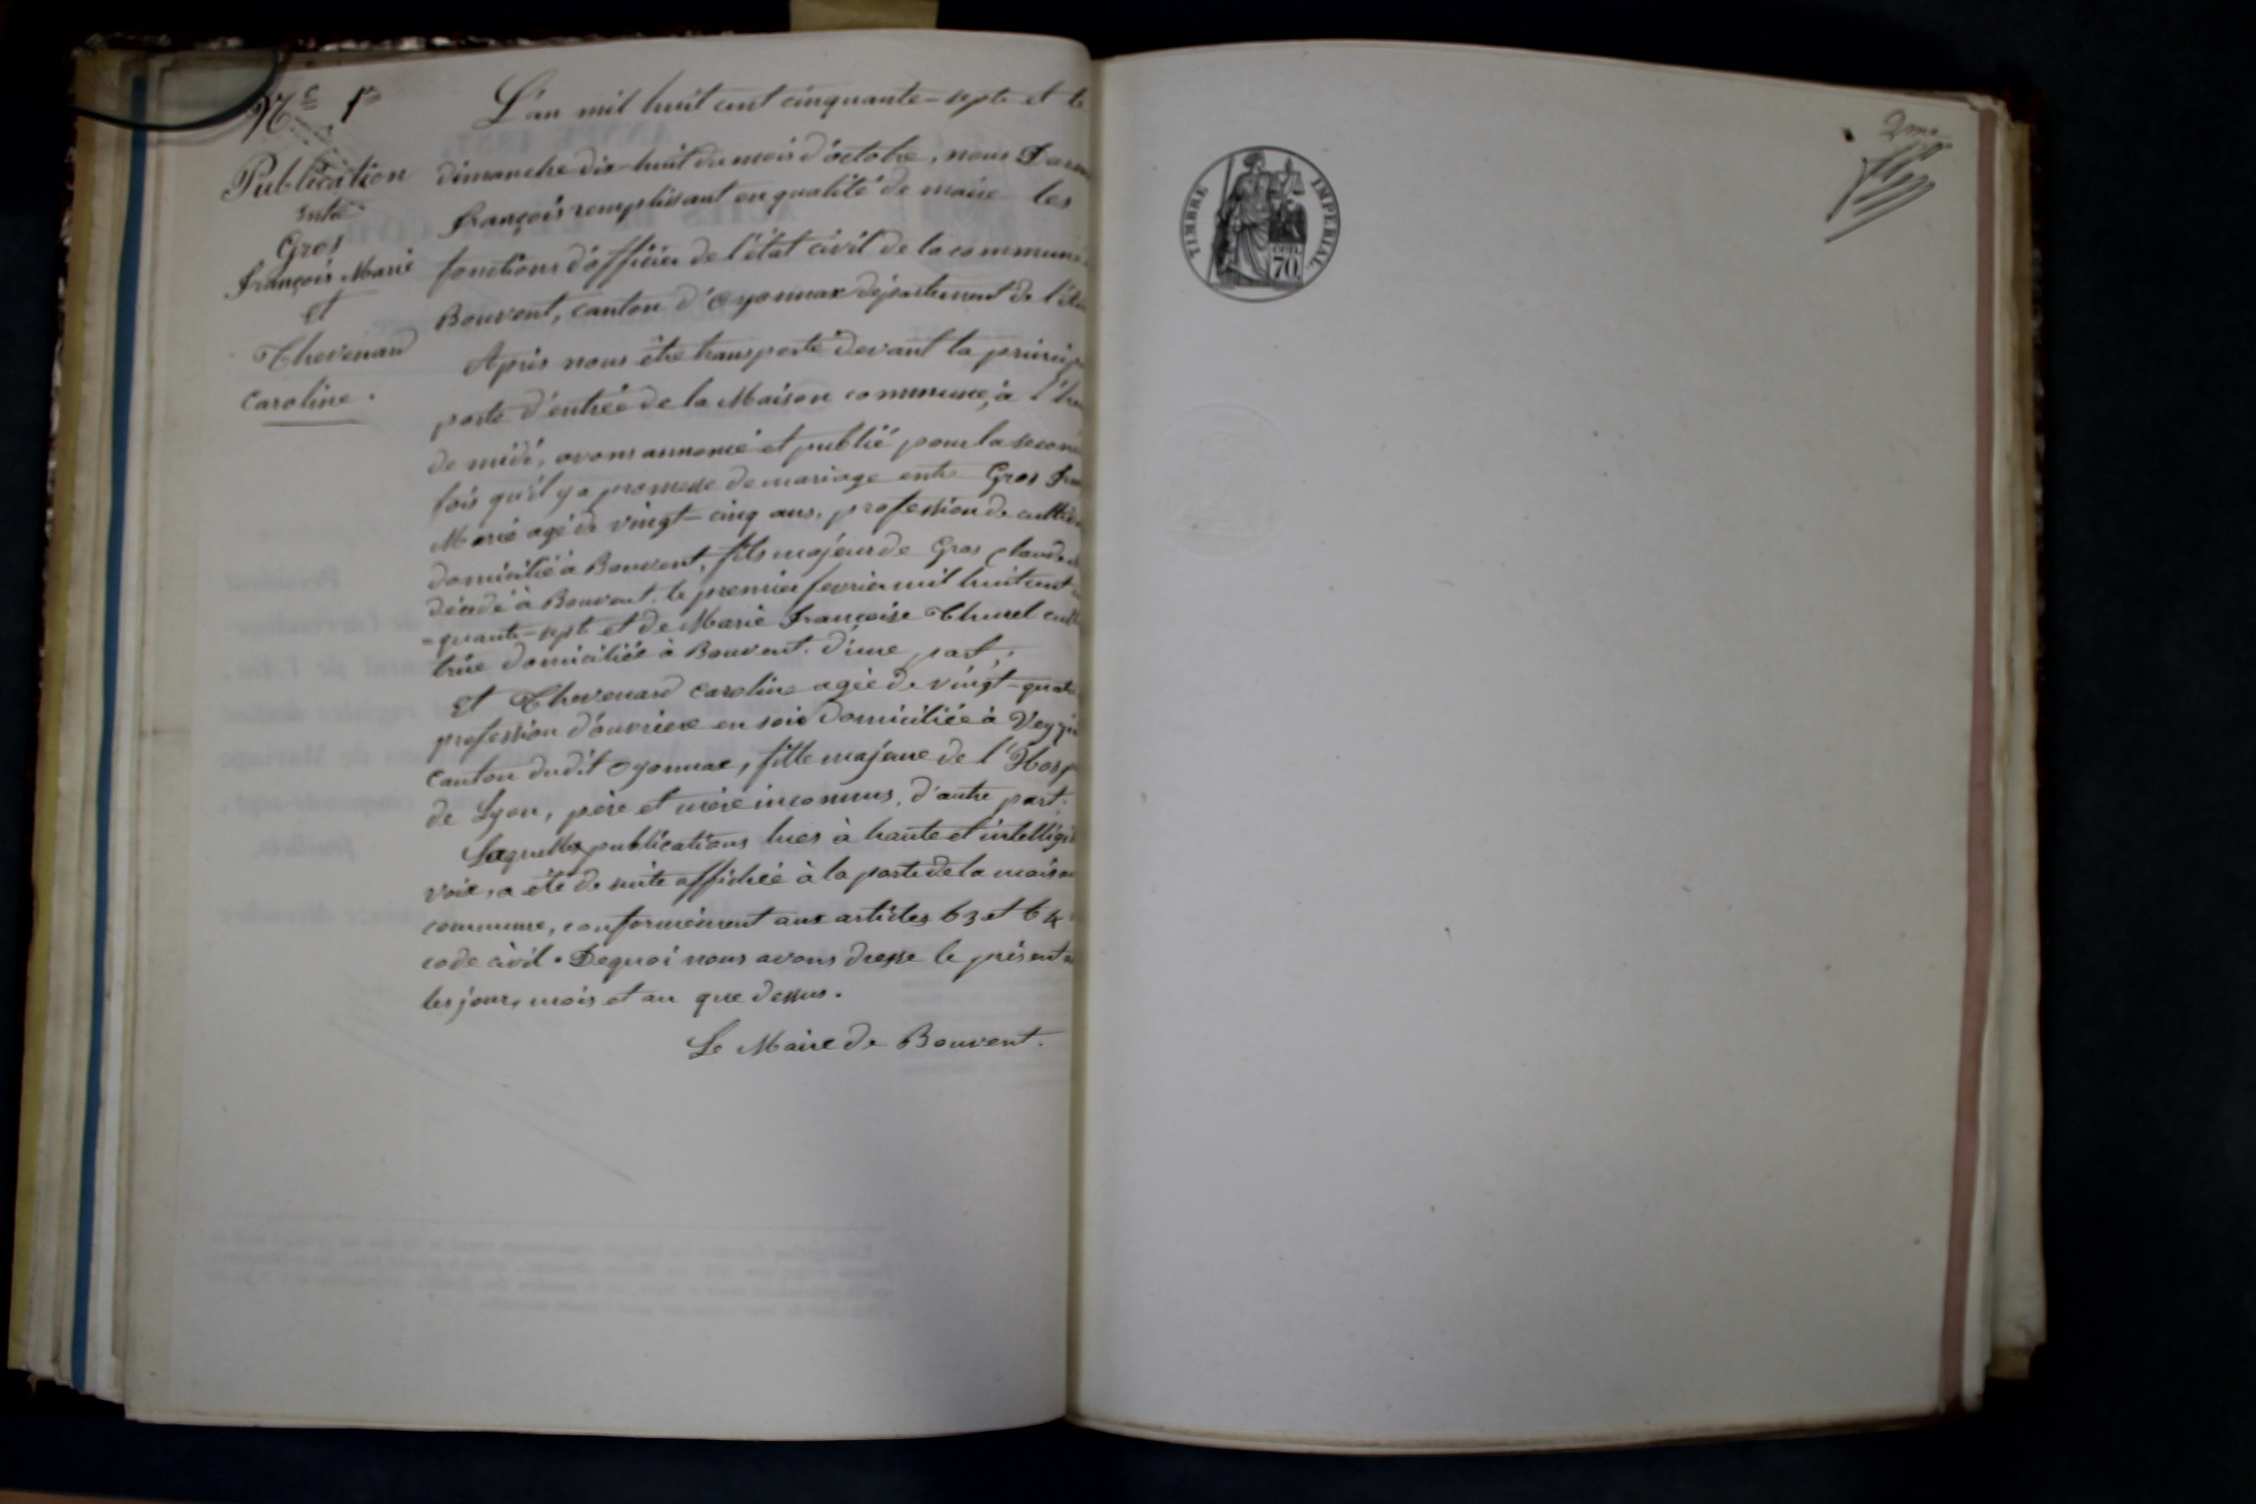 Nº 1er
Publication
entre
Gros
François Marie
et
Thevenard
Caroline.
L'an mil huit cent cinquante-sept et le
dimanche dix-huit du mois d'octobre, nous
François remplissant en qualité de maire les
fonctions d'officier de l'état civil de la commune
Bouvent, canton d'Oyonnax département de l'Ain
Après nous être transporté devant la princip
porte d'entrée de la Maison commune, à l'heu
de midi, avons annoncé et publié pour la secon
fois qu'il y a promesse de mariage entre Gros Fran
Marie agé de vingt-cinq ans, profession de cultiv
domicilié à Bouvent, fils majeur de Gros Claude
décédé à Bouvent le premier fevrier mil huit cent
=quante-sept et de Marie Françoise Thurel cult
trice domiciliée à Bouvent. d'une part;
Et Thevenard Caroline agée de vingt-quatr
profession d'ouvriere en soie domiciliée à Veyzia
canton dudit Oyonnax, fille majeure de l'Hosp
de Lyon, père et mère inconnus, d'autre part.
Laquelle publications lues à haute et intelligi
voix, a été de suite affichée à la porte de la maison
commune, conformément aux articles 63 et 64
code civil. Dequoi nous avons dresse le présent a
les jour, mois et an que dessus.
Le Maire de Bouvent.
TIMBRE IMPERIAL
CENT.
70
2me